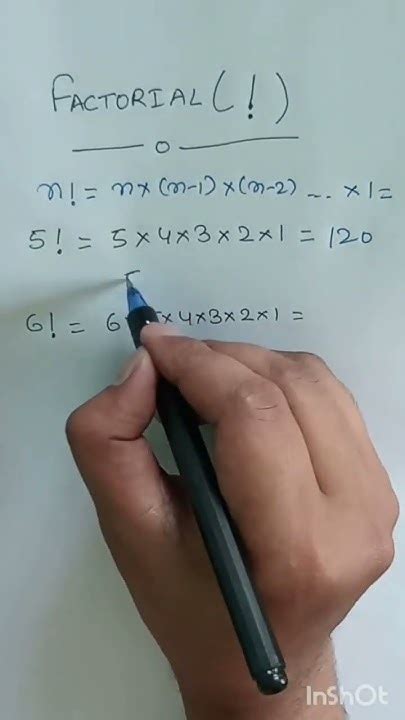 FACTORIAL (!)
n! = n×(n-1)×(n-2) ... ×1=
5! = 5×4×3×2×1 = 120
6! = 6 ×4×3×2×1 =
InShOt